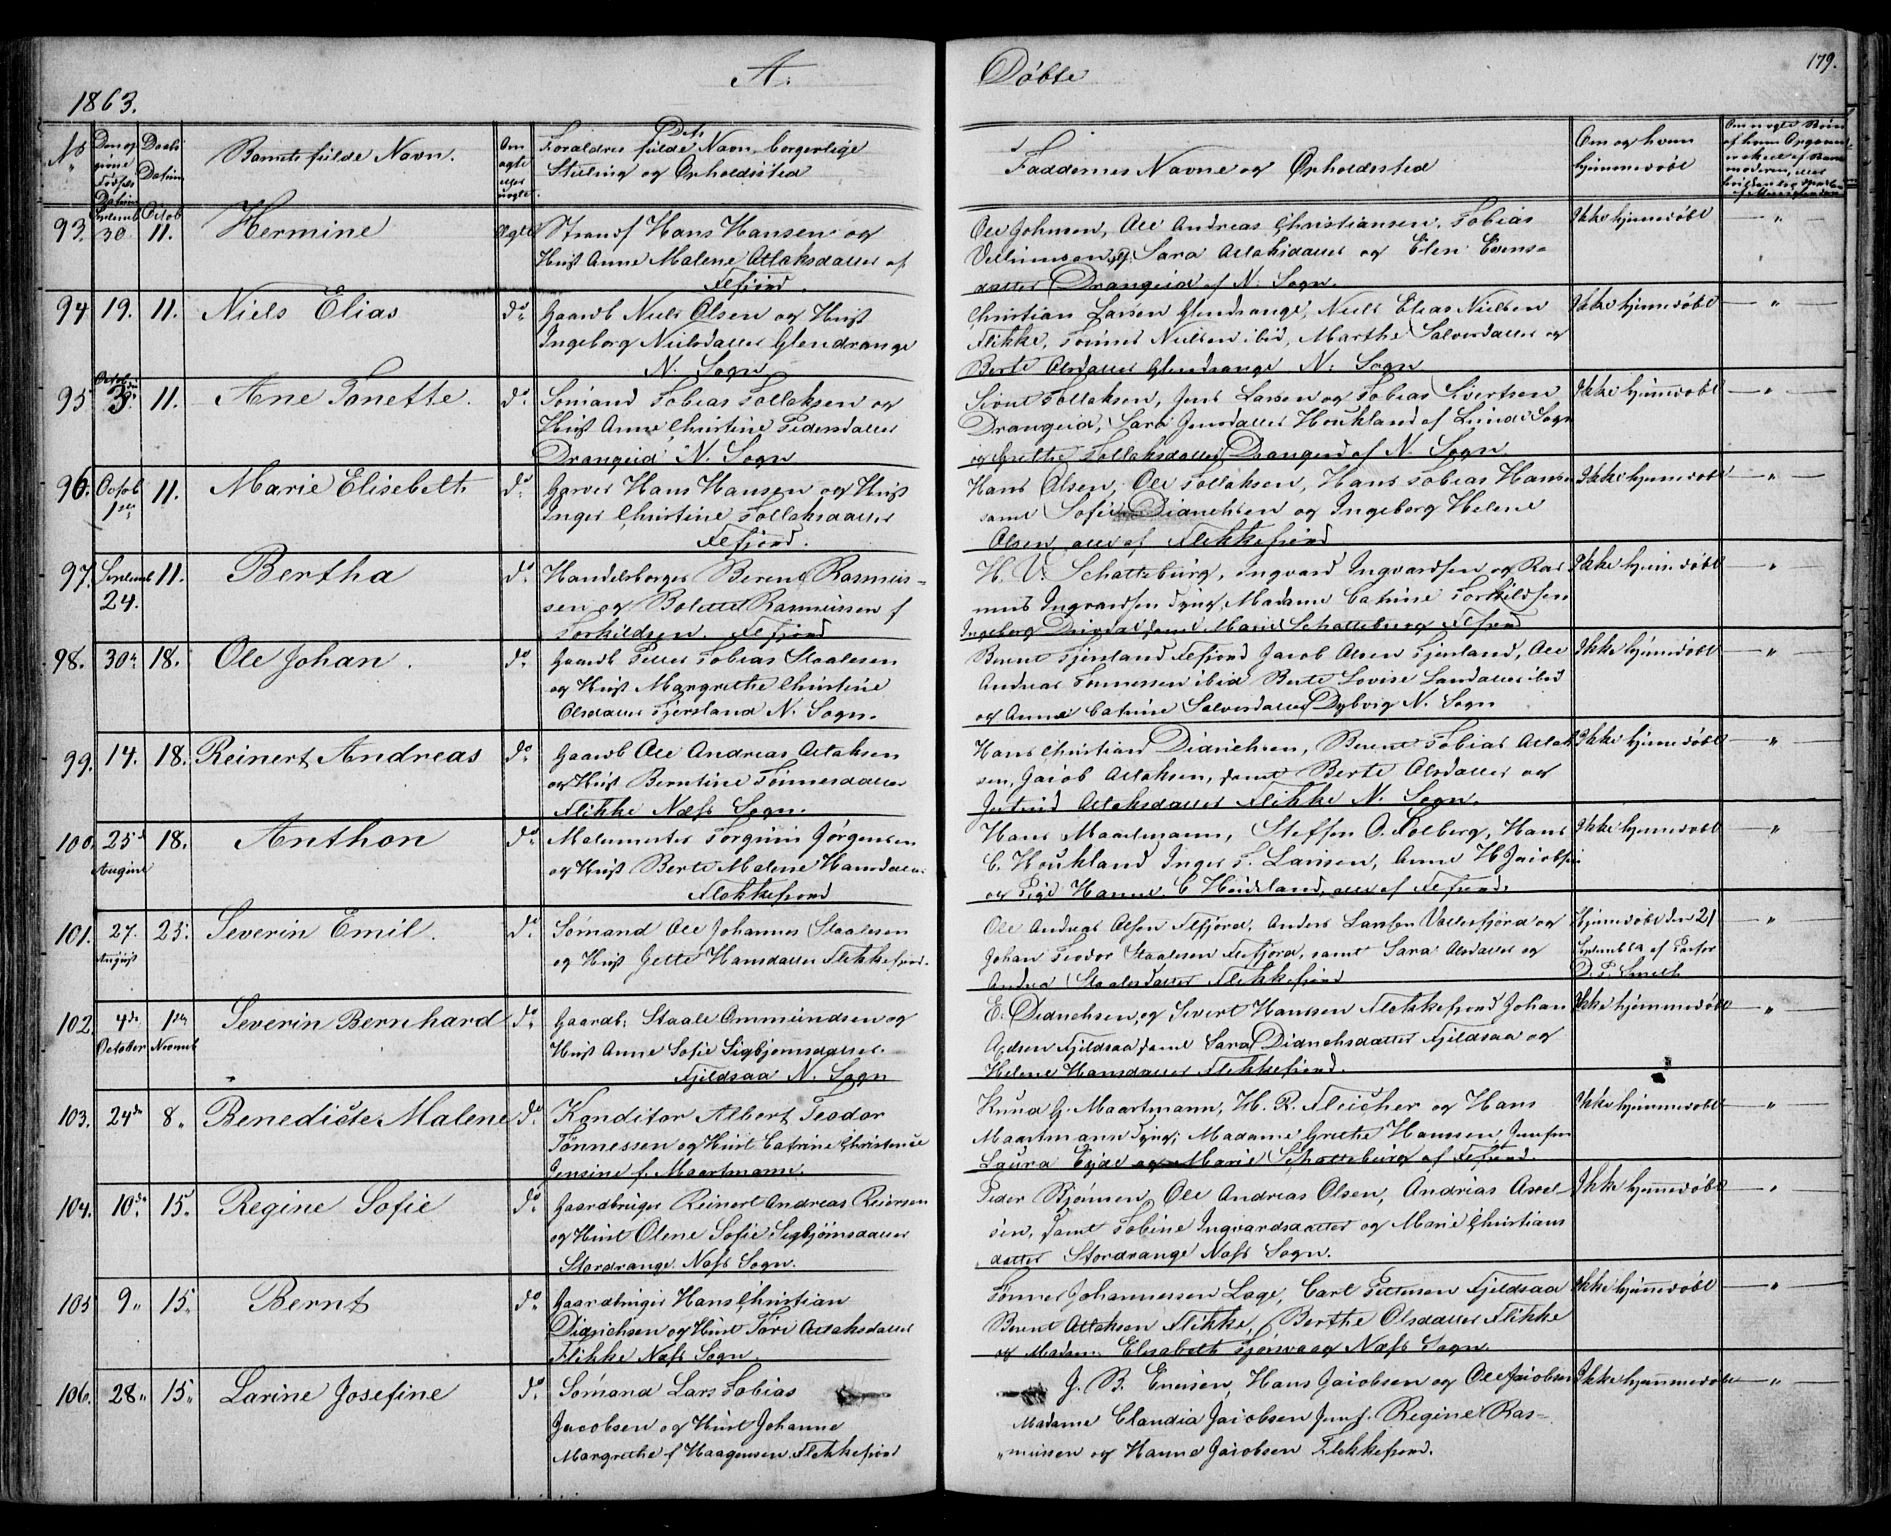 1863. A. Døbte 179.
No Barnets fulde Navn. Forældres fulde Navn, borgerlige
Stilling og Opholdssted
Faddernes Navne og Opholdssted
Om og hvem
hjemmedøbt
93. Septemb 30 Octob 11. Hermine ægte Strandf Hans Hansen og
Hust Anne Malene Atlaksdatter af
Flefjord.
Ole Johnsen, Ole Andreas Christiansen, Tobias
Sara Atlaksdatter og Elen Evens-
datter Drangeid af N. Sogn.
Ikke hjemmedøbt — " —
94 19. 11. Niels Elias do. Gaardb Niels Olsen og Hust
Ingeborg Nielsdatter Glendrange
N. Sogn
Christian Larsen Glendrange, Niels Elias Nielsen
Flikke, Tønnes Nielsen ibid, Marthe Salvesdatter og
Berte Olsdatter Glendrange N. Sogn
Ikke hjemmedøbt — " —
95 Octob 3. 11. Ane Tonette. do. Sømand Tobias Tollaksen og
Hust Anne Christine Pedersdatter
Drangeid N. Sogn
Sivert Tollaksen, Jens Larsen og Tobias Sivertsen
Drangeid, Sara Jensdatter Houkland af Lunds Sogn
og Grethe Tollaksdatter Drangeid af N. Sogn
Ikke hjemmedøbt — " —
96. Octob 1ste 11. Marie Elisebeth do. Garver Hans Hansen og Hust
Inger Christine Tollaksdatter
Flefjord.
Hans Olsen, Ole Tollaksen, Hans Tobias Hansen
samt Sofie Didrichsen og Ingeborg Helene
Olsen, alle af Flekkefjord
Ikke hjemmedøbt — " —
97. Septemb 24. 11. Bertha do. Handelsborger Berent Rasmus-
sen og Bolette Rasmussen f
Torkildsen. Flefjord
H. V. Schatteburg, Ingvard Ingvardsen og Ras
mus Ingvardsen Madame Catrine Torkildsen
Ingeborg samt Marie Schatteburg Flefjord
Ikke hjemmedøbt — " —
98. 30. 18. Ole Johan. do. Gaardb Peter Tobias Staalesen
og Hust Margrethe Christine
Olsdatter Tjersland N. Sogn.
Berent Tjersland Flefjord Jacob Olsen Tjersland, Ole
Andreas Tønnessen ibid Berte Lovise Larsdatter ibid
og Anne Catrine Salvesdatter Dybvig N. Sogn
Ikke hjemmedøbt — " —
99. 14. 18. Reinert Andreas do. Gaardb Ole Andreas Atlaksen
og Hust Berntine Tønnesdatter
Flikke Næss Sogn.
Hans Christian Didrichsen, Berent Tobias Atlak
sen, Jacob Atlaksen, samt Berte Olsdatter og
Jertrud Atlaksdatter Flikke N. Sogn.
Ikke hjemmedøbt — " —
100. 25de August 18. Anthon do. Malermester Torgrim Jørgensen
og Hust Berte Malene Hansdatter
Flekkefjord
Hans Maartmann, Steffen O. Solberg, Hans
C. Houkland Inger T. Larsen, Anne H Jacobsen
og Pige Hanne C Heidsland, alle af Flefjord.
Ikke hjemmedøbt "
101. 27. August 25. Severin Emil. do. Sømand Ole Johannes Staalesen
og Hust Jette Hansdatter Flekkefjord.
Ole Andreas Olsen Flefjord, Anders Larssen Vollesfjord og
Johan Teodor Staalesen Flefjord, samt Sara Olsdatter og
Andrea Staalesdatter Flekkefjord
Hjemmedøbt den 21
September af Pastor
Smith — " —
102. 4de October 1ste Novemb Severin Bernhard do. Gaardb. Staale Ommundsen og
Hust Anne Sofie Sigbjørnsdatter.
Fjeldsaa N. Sogn
E. Didrichsen, og Sivert Hanssen Flekkefjord Johan
Fjeldsaa samt Sara Didrichsdatter Fjeldsaa og
Helene Hansdatter Flekkefjord.
Ikke hjemmedøbt — " —
103. 24de 8. Benedicte Malene do. Konditor Albert Teodor
Tønnessen og Hust Catrine Christence
Jensine f. Maartmann
Knud G. Maartmann, H. R. Fleicher og Hans
Maartmann Madame Grethe Hanssen, Jomfru
Laura Eyde og Marie Schatteburg af Flefjord
Ikke hjemmedøbt — " —
104. 10de 15. Regine Sofie do. Gaardbruger Reinert Andreas Reiersen
og Hust Olene Sofie Sigbjørnsdatter
Stordrange Næss Sogn.
Peder Bjørnsen, Ole Andreas Olsen, Andrias Axel-
sen, samt Tobine Ingvardsdatter og Marie Christians
datter Stordrange Næss Sogn.
Ikke hjemmedøbt "
105 9. 15. Bernt do. Gaardbruger Hans Christian
Didrichsen og Hust Tøri Atlaksdatter
Flikke Næss Sogn.
Tønnes Johannessen Loge, Carl Pettersen Fjeldsaa
Berent Atlaksen Flikke, Berthe Olsdatter Flikke
og Madam: Elisabeth Næss Sogn.
Ikke hjemmedøbt — " —
106. 28. 15. Larine Josefine do. Sømand Lars Tobias
Jacobsen og Hust Johanne
Margrethe f Haagensen. Flekkefjord
J. B. Eneisen, Hans Jacobsen og Ole Jacobsen
Madame Claudia Jacobsen Jomf. Regine Ras-
mussen og Hanne Jacobsen Flekkefjord.
Ikke hjemmedøbt — " —